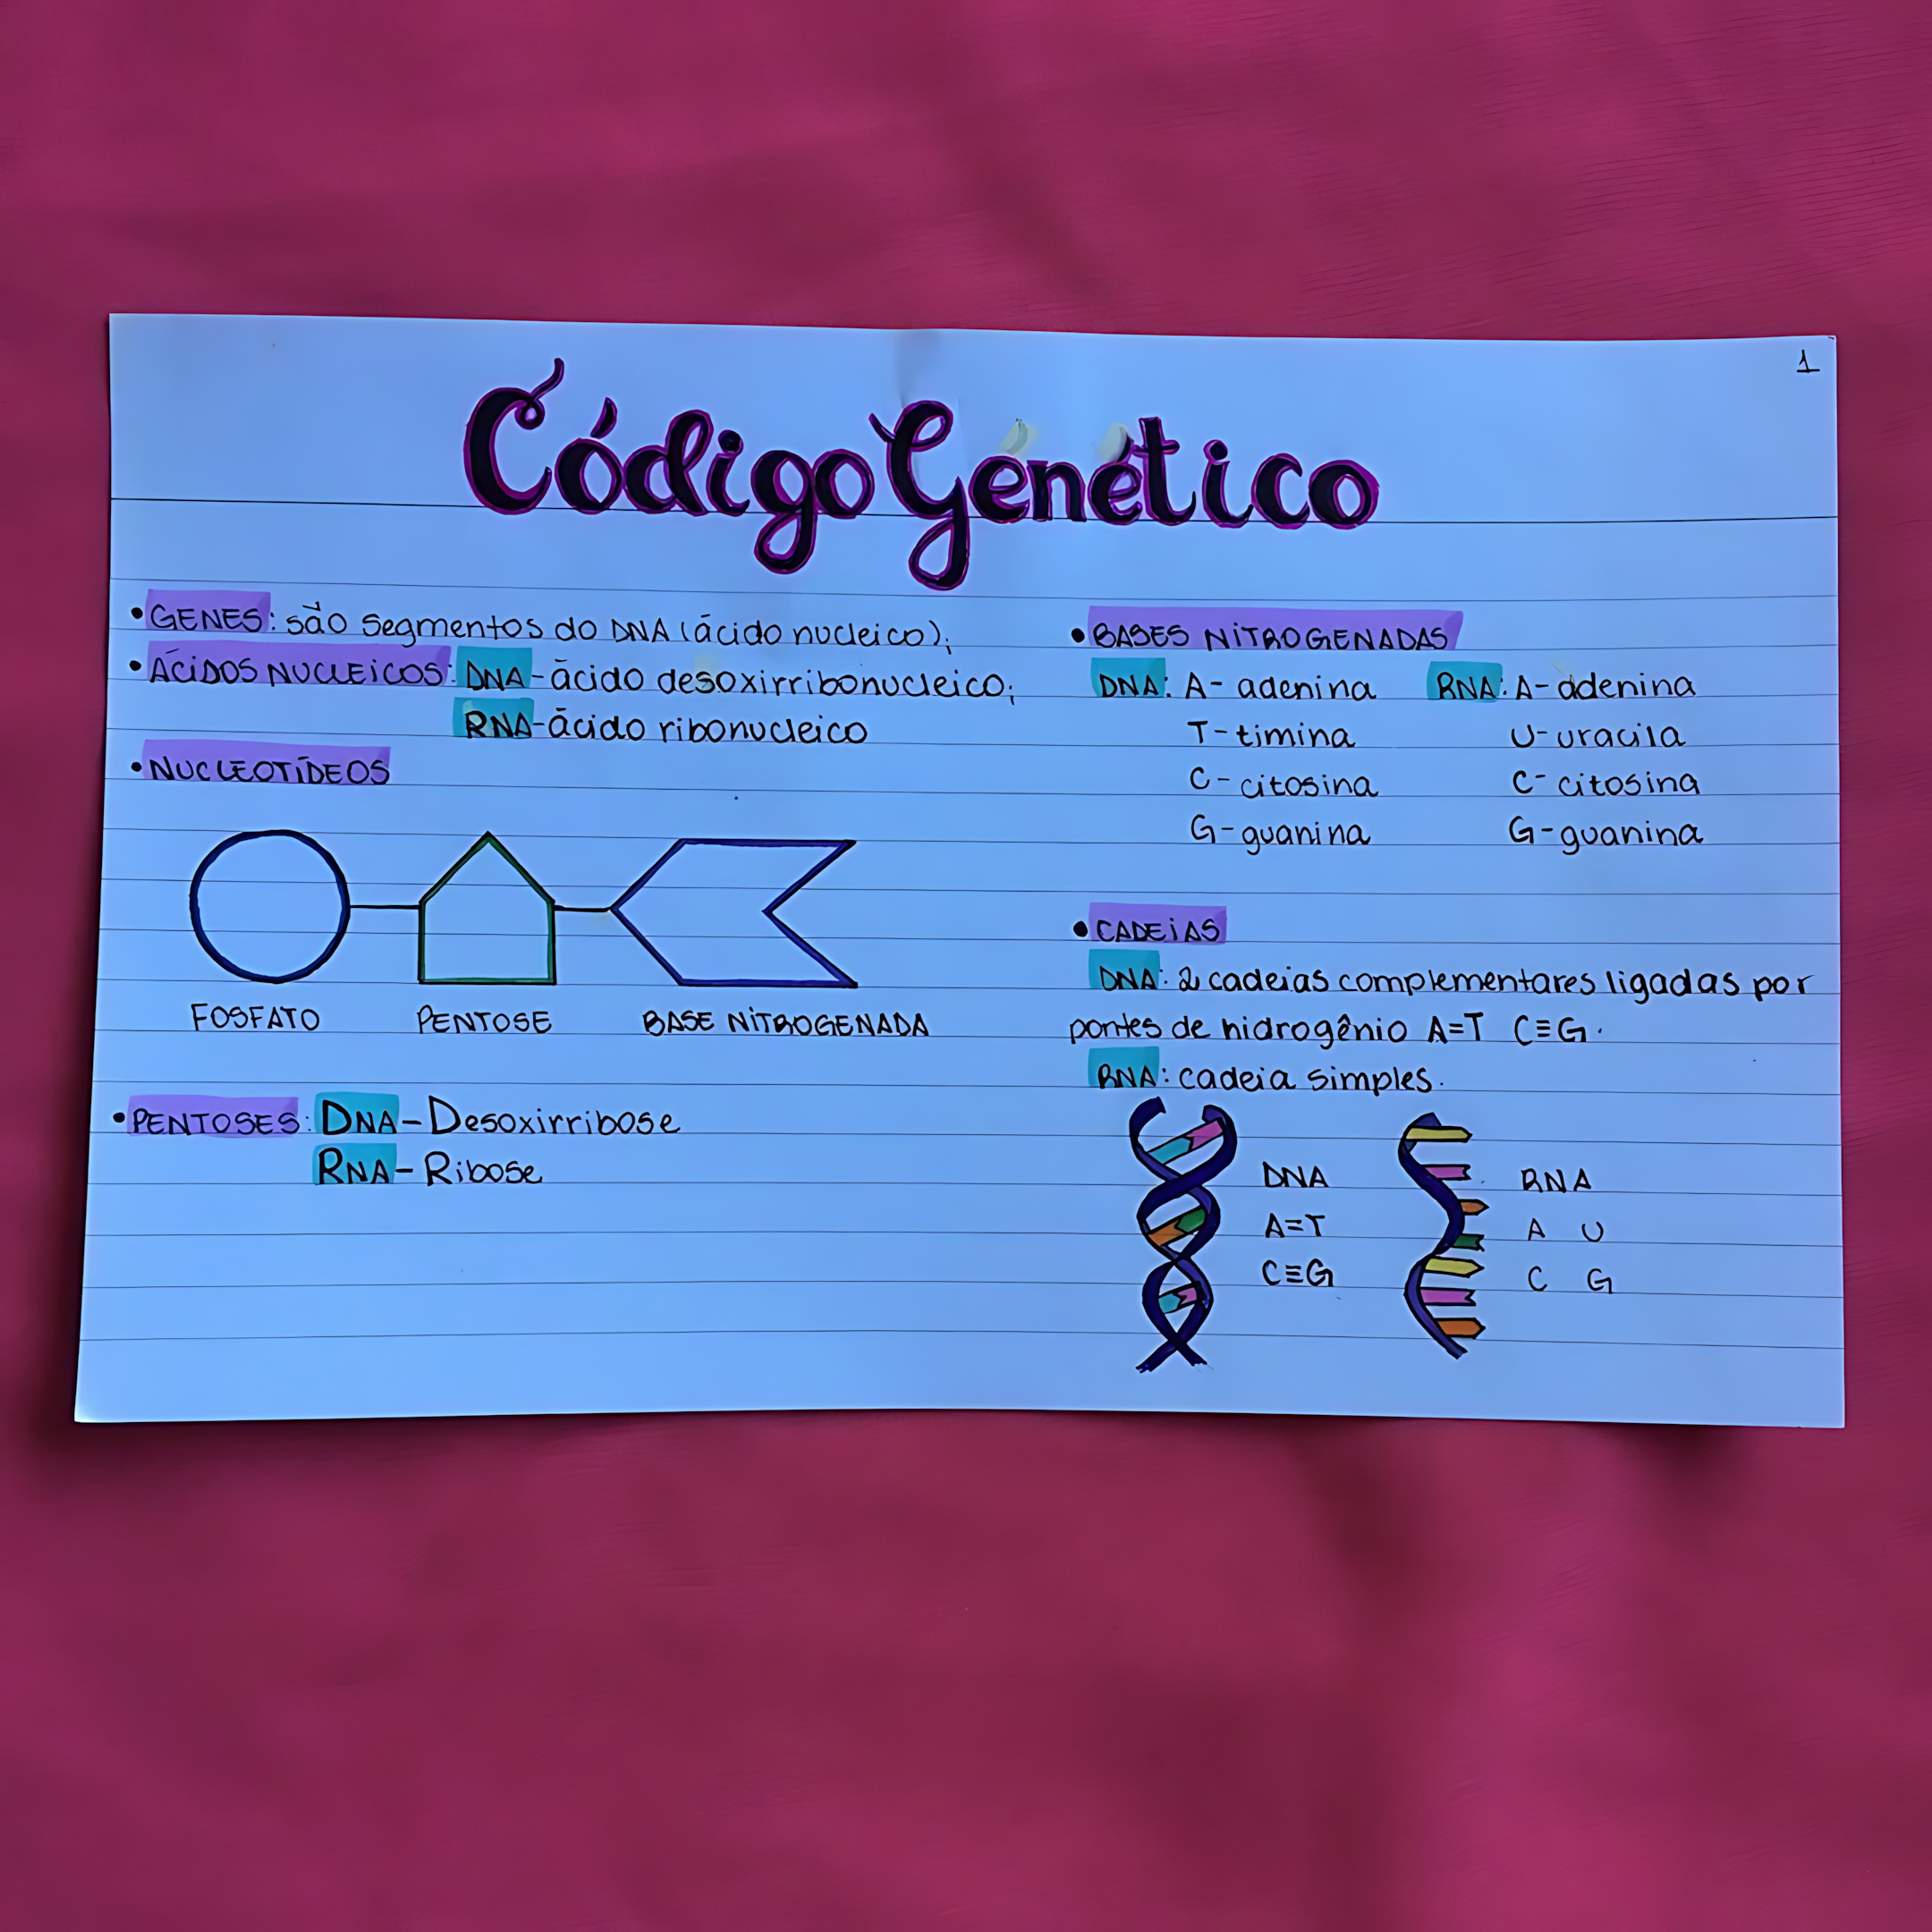 1
Código Genético
• GENES: são segmentos do DNA (ácido nucleico);
• ÁCIDOS NUCLEICOS: DNA - ácido desoxirribonucleico;
RNA - ácido ribonucleico
• NUCLEOTÍDEOS
FOSFATO PENTOSE BASE NITROGENADA
• PENTOSES: DNA - Desoxirribose
RNA - Ribose
• BASES NITROGENADAS
DNA: A - adenina RNA: A - adenina
T - timina U - uracila
C - citosina C - citosina
G - guanina G - guanina
• CADEIAS
DNA: 2 cadeias complementares ligadas por
pontes de hidrogênio A=T C≡G.
RNA: cadeia simples.
DNA RNA
A=T A U
C≡G C G